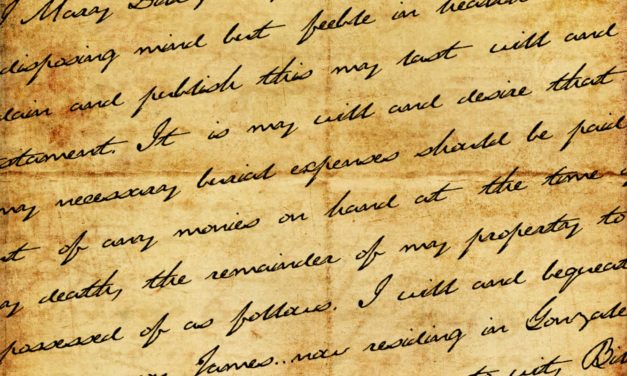 I Mary
disposing mind but feeble in health
dain and publish this my last will and
statament. It is my will and desire that
my necessary burial expenses should be paid
t of any monies on hand at the time
y death, the remainder of my property to
possessed of as follows. I will and bequeat
James.. now residing in Gonzale
with